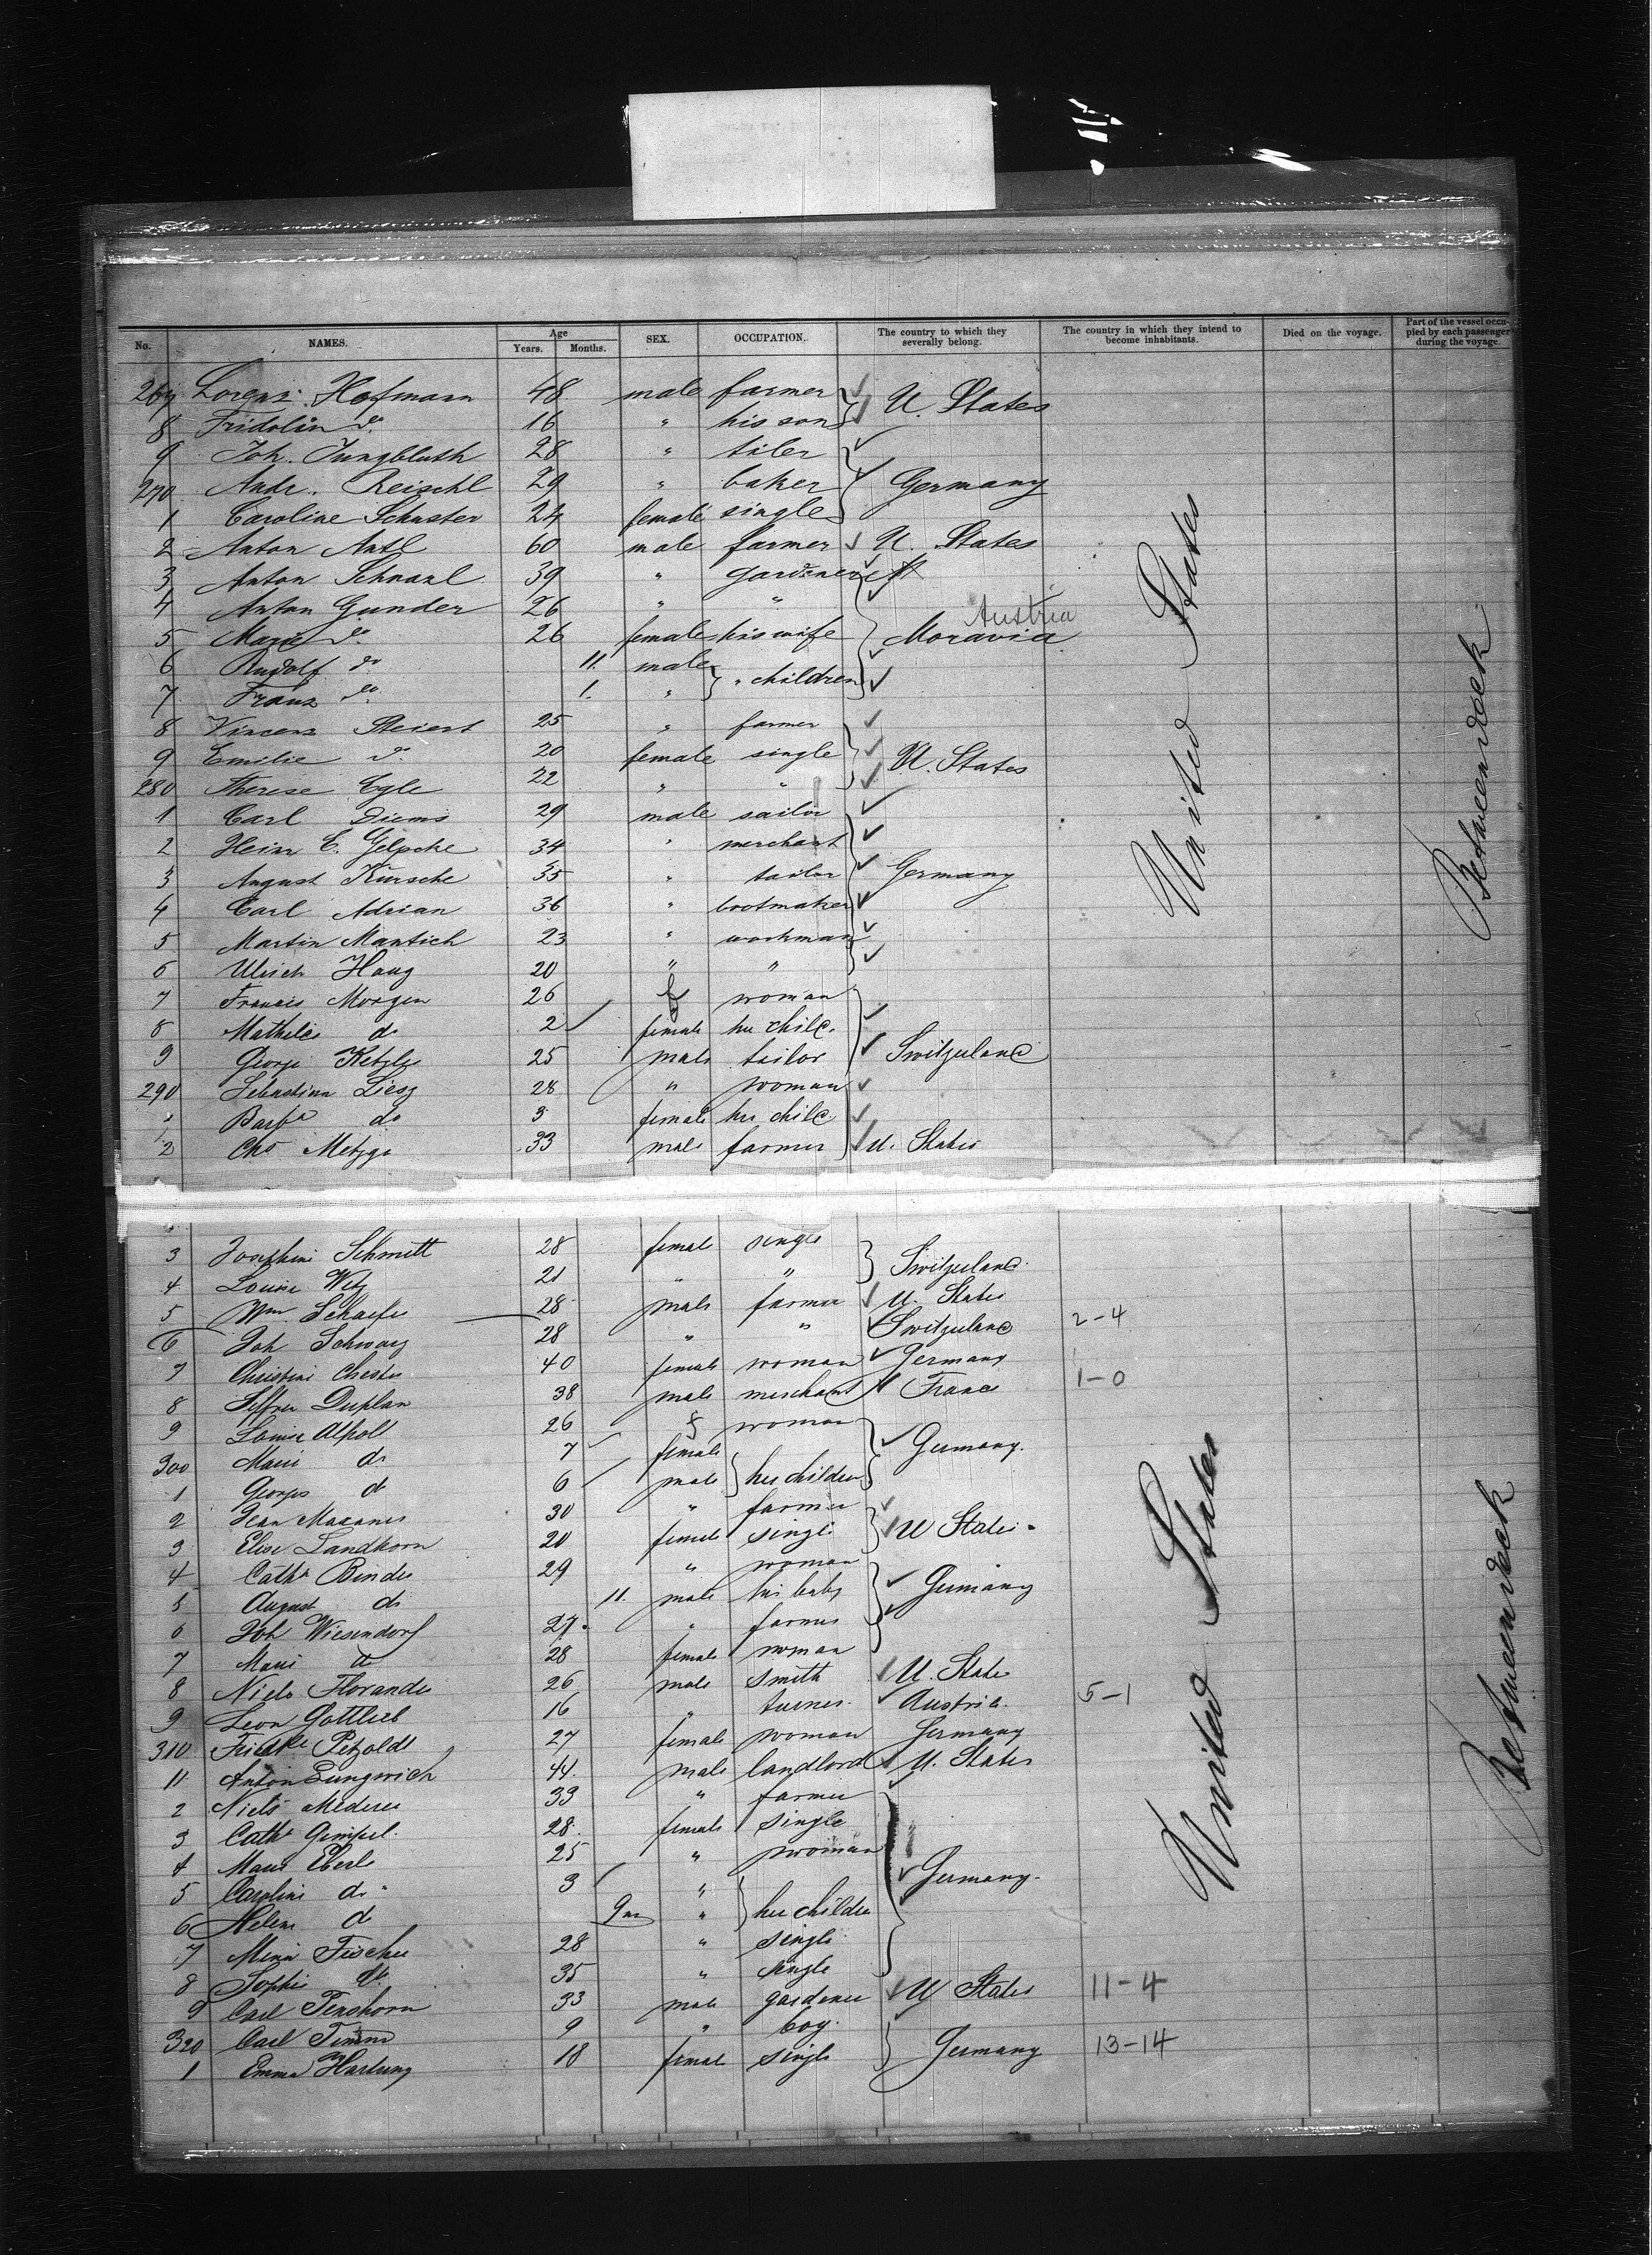 No. NAMES. Age Years. Months. SEX. OCCUPATION. The country to which they severally belong. The country in which they intend to become inhabitants. Died on the voyage. Part of the vessel occupied by each passenger during the voyage.
267 Lorenz Hofmann 48 male farmer U. States
8 Fridolin do 16 " his son
9 Joh. Jungbluth 28 " tiler
270 Andr. Reischl 29 " baker Germany
1 Caroline Schuster 24 female single
2 Anton Antl 60 male farmer U. States
3 Anton Schnabl 39 " gardener
4 Anton Gunder 26 " " Austria
5 Marie do 26 female his wife Moravia
6 Rudolf do 11. male
7 Franz do 1. " " children
8 Vincenz Steiert 25 " farmer
9 Emilie do 20 female single U. States
280 Therese Egle 22 " "
1 Carl Diems 29 male sailor
2 Heinr E. Gelpcke 34 " merchant
3 August Kursche 35 " tailor Germany
4 Carl Adrian 36 " bootmaker
5 Martin Mantich 23 " workman
6 Ulrich Haug 20 " "
7 Francis Morgen 26 f woman
8 Mathilde do 2 female her child
9 George Ketzly 25 male tailor Switzerland
290 Sebastian Liesz 28 " woman
1 Barba do 3 female her child
2 Chs Metzger 33 male farmer U. States
United States
Betweendeck
3 Josephine Schmitt 28 female single
4 Louise Wetz 21 " " Switzerland
5 Wm. Schaefer 28 male farmer U. States
6 Joh Schwarz 28 " " Switzerland 2-4
7 Christine Chester 40 female woman Germany
8 Duplan 38 male merchant France 1-0
9 Louise 26 f woman
300 Marie do 7 female Germany.
1 Georges do 6 male her children
2 Jean 30 " farmer
3 Elise Landhorn 20 female single U States
4 Cathe Binder 29 " woman
5 August do 11. male her baby Germany
6 Joh Wiesendorf 27. " farmer
7 Marie do 28 female woman
8 Niels Florander 26 male smith U. States
9 Leon Gottlieb 16 " turner Austria. 5-1
310 Friedke Petzoldt 27 female woman Germany
11 Anton Lungwich 44. male landlord U. States
2 Niels 33 " farmer
3 Cathe Gimpel. 28. female single
4 Marie Eberle 25 " woman
5 Caroline do 3 " Germany.
6 Helene do 9m " her children
7 Mina Fischer 28 " single
8 Sophie do 35 " single
9 Carl Penshorn 33 male gardener U States 11-4
320 Carl Timm 9 " boy.
1 Emma Hartung 18 female single Germany 13-14
United States
Betweendeck